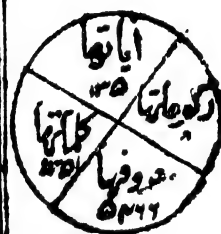 آیاتها
۱۳۵
رکوعاتها
۸
کلماتها
حروفها
۵۴۶۶